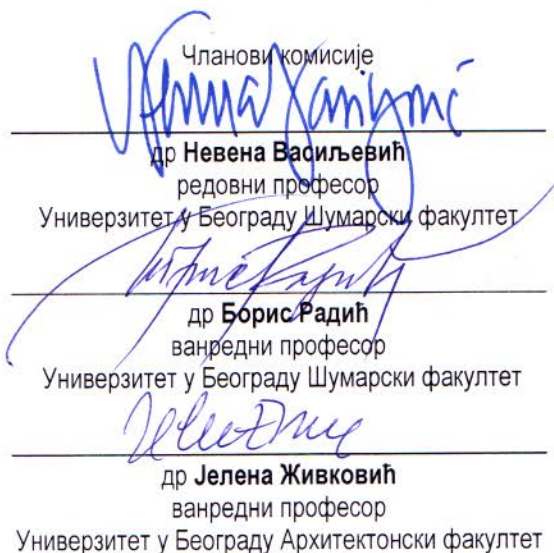 Чланови комисије
др Невена Васиљевић
редовни професор
Универзитет у Београду Шумарски факултет
др Борис Радић
ванредни професор
Универзитет у Београду Шумарски факултет
др Јелена Живковић
ванредни професор
Универзитет у Београду Архитектонски факултет